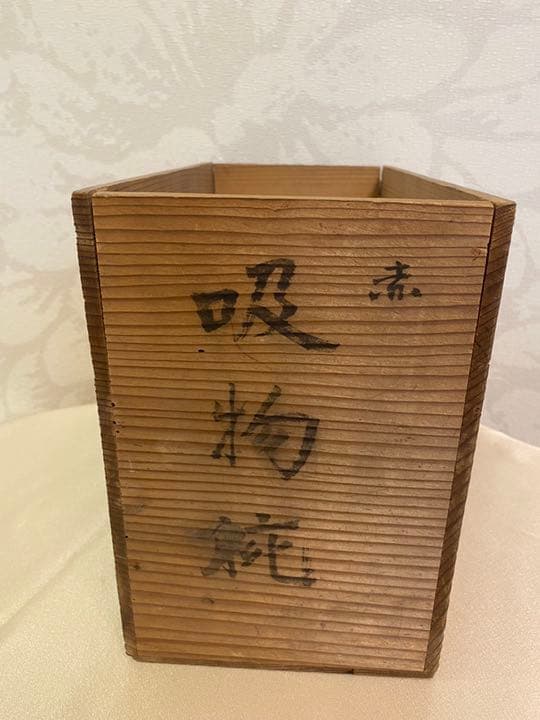 赤
吸物椀